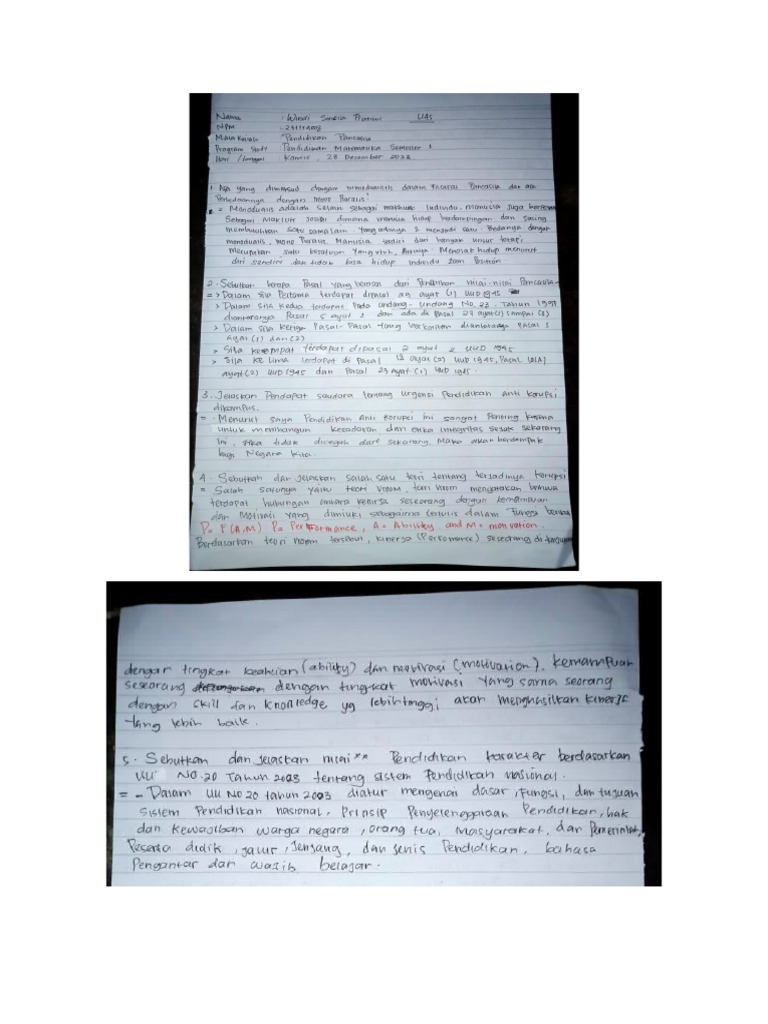 Nama : Sinesia Pratiwi UAS
NPM :
Mata Kuliah : Pendidikan Pancasila
Program Studi : Pendidikan Matematika Semester 1
Hari / tanggal : Kamis, 28 Desember 2023
1. Apa yang dimaksud dengan monodualis dalam Pancasila dan apa
Perbedaannya dengan Mono Pluralis?
= Monodualis adalah selain sebagai makhluk Individu, manusia juga
Sebagai Makhluk Sosial dimana manusia hidup berdampingan dan saling
membutuhkan satu sama lain. Yang artinya 2 menjadi satu. Bedanya dengan
monodualis, Mono Pluralis Manusia terdiri dari banyak unsur tetapi
merupakan satu kesatuan yang utuh, hidup menurut
diri sendiri dan tidak bisa hidup individu
2. Sebutkan berapa Pasal yang berasal dari nilai-nilai Pancasila
= > Dalam Sila Pertama terdapat dipasal 29 ayat (1) UUD 1945
> Dalam Sila kedua terdapat Pada Undang-Undang No. 23, Tahun 1997
diantaranya Pasal 5 ayat 1 dan ada di Pasal 27 ayat (1) sampai (3)
> Dalam Sila ketiga Pasal-Pasal yang berkaitan diantaranya Pasal 1
Ayat (1) dan (2)
> Sila keempat terdapat dipasal 2 ayat 2 UUD 1945
> Sila ke lima terdapat di Pasal Ayat (2) UUD 1945, Pasal
Ayat (2) UUD 1945 dan Pasal 23 Ayat (1) UUD 1945.
3. Jelaskan Pendapat saudara tentang urgensi Pendidikan Anti Korupsi
dikampus.
= Menurut saya Pendidikan Anti Korupsi ini sangat Penting karena
untuk membangun kesadaran dan etika integritas sejak sekarang
ini, Jika tidak dicegah dari sekarang, Maka akan berdampak
bagi Negara kita.
4. Sebutkan dan jelaskan salah satu teori tentang terjadinya korupsi
= Salah satunya yaitu teori Vroom, teori Vroom mengatakan bahwa
terdapat hubungan antara kinerja seseorang dengan kemampuan
dan Motivasi yang dimiliki sebagaimana tertulis dalam Fungsi berikut
P = F (A,M) P = Performance, A = Ability and M = motivation.
Berdasarkan teori Vroom tersebut, kinerja (Performance) seseorang
dengan tingkat keahlian (ability) dan motivasi (motivation). kemampuan
seseorang dengan tingkat motivasi yang sama seorang
dengan skill dan knowledge yg lebih tinggi akan menghasilkan kinerja
yang lebih baik.
5. Sebutkan dan jelaskan nilai** Pendidikan karakter berdasarkan
UU No. 20 Tahun 2003 tentang sistem Pendidikan nasional.
= - Dalam UU No 20 tahun 2003 diatur mengenai dasar, fungsi, dan tujuan
Sistem Pendidikan nasional, Prinsip Penyelenggaraan Pendidikan, hak
dan kewajiban warga negara, orang tua, Masyarakat, dan Pemerintah,
Peserta didik, jalur, Jenjang, dan jenis Pendidikan, bahasa
Pengantar dan wajib belajar.